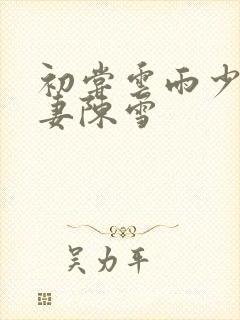 初尝雲雨少
妻陳雪
吴力平